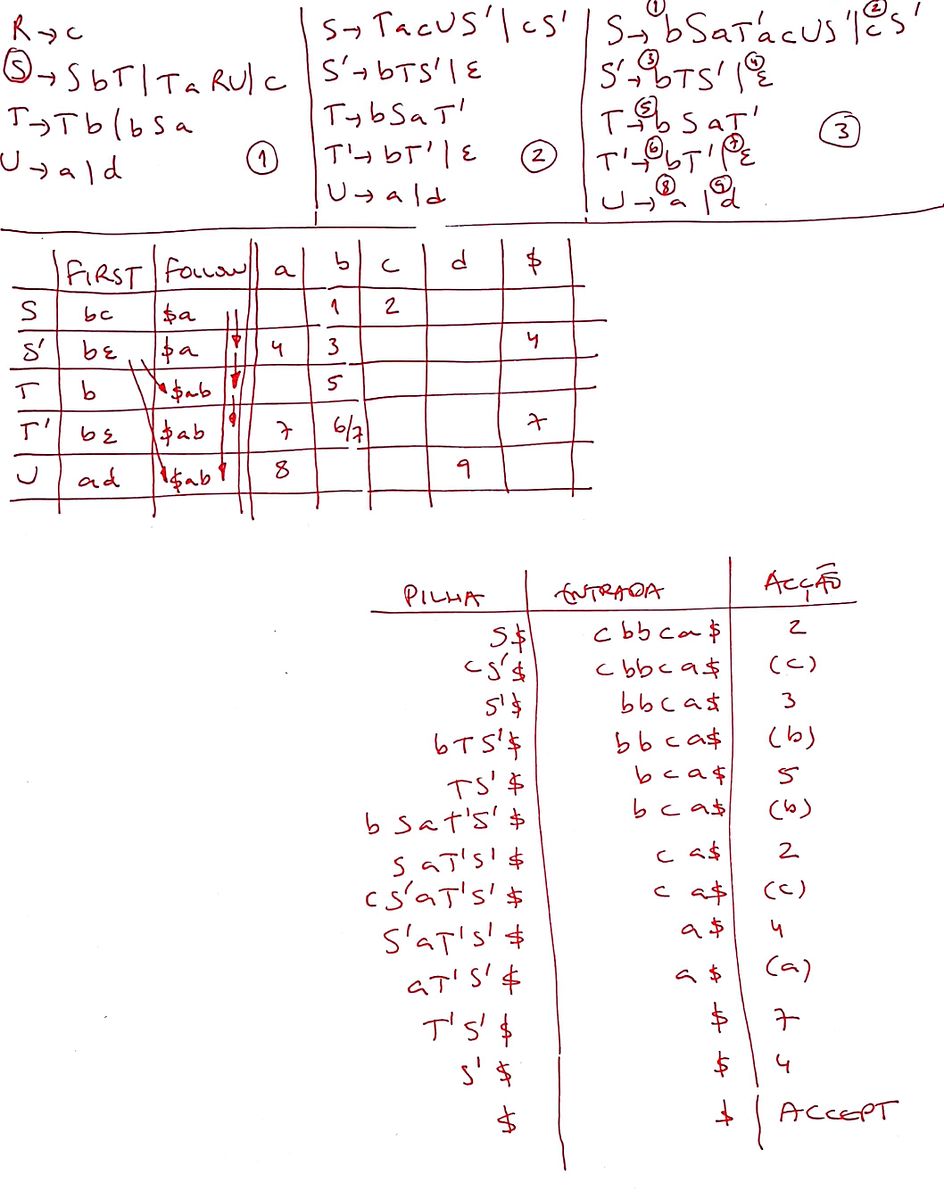 R→c
Ⓢ→SbT|TaRU|c
T→Tb|bSa
U→a|d
①
S→TacUS'|cS'
S'→bTS'|ε
T→bSaT'
T'→bT'|ε
U→a|d
②
S→①bSaT'acUS'|②cS'
S'→③bTS'|④ε
T→⑤bSaT'
T'→⑥bT'|⑦ε
U→⑧a|⑨d
③
FIRST FOLLOW a b c d $
S bc $a 1 2
S' bε $a 4 3 4
T b $ab 5
T' bε $ab 7 6/7 7
U ad $ab 8 9
PILHA ENTRADA ACÇÃO
S$ cbbca$ 2
cS'$ cbbca$ (c)
S'$ bbca$ 3
bTS'$ bbca$ (b)
TS'$ bca$ 5
bSaT'S'$ bca$ (b)
SaT'S'$ ca$ 2
cS'aT'S'$ ca$ (c)
S'aT'S'$ a$ 4
aT'S'$ a$ (a)
T'S'$ $ 7
S'$ $ 4
$ $ ACCEPT